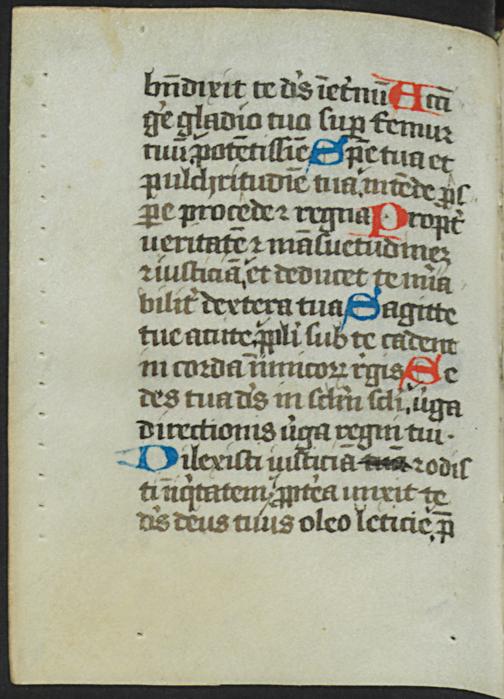 bn̄dixit te ds̄ īet̄nū Acci
ge gladio tuo sup̄ femur
tuū potētissīe Spē tua et
pulchritudīe tua, intēde ps
pe procede ⁊ regna Propt̄
ueritatē ⁊ māsuetudinez
⁊ iusticiā, et deducet te mīa
bilit̄ dextera tua Sagitte
tue acute, ppli sub te cadent
in corda inimicoꝝ rēgis Se
des tua ds̄ in sclm̄ scli, ūga
directionis ūga regni tui.
Dilexisti iusticiā tuā ⁊ odis
ti iīqtatem, ppt̄ea unxit te
ds̄ deus tuus oleo leticie, p̄